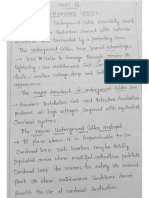 UNIT III
UNDERGROUND CABLES
An Underground Cable essentially consists
of one or more Conductors covered with suitable
insulation and surrounded by a protecting cover.
The Underground Cables have several advantages.
- Less liable to damage through storms or
lightning, low maintenance cost, less chances of
faults, smaller voltage drop and better general
appearance.
The major drawback of Underground cables
- Greater installation cost and insulation problems
at high voltages compared with equivalent
overhead system.
The reason Underground Cables employed
places where it is impracticable to use
overhead lines. Such locations may be thickly
populated areas where municipal authorities prohibit
overhead lines for reasons of safety, or around
plants
or where maintenance conditions do not
permit the use of overhead construction.